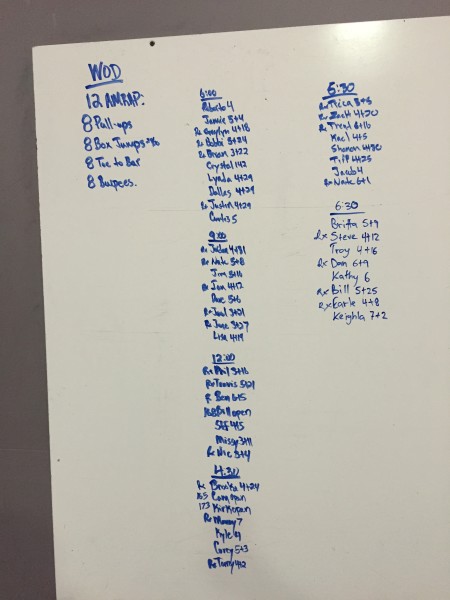 WOD
12 AMRAP:
8 Pull-ups
8 Box Jumps
8 Toe to Bar
8 Burpees.
6:00
Roberto 4
Jamie 5+4
Rx 4+18
Rx Bobbi 3+24
Rx Brian 3+22
Crystal 1+2
Lynda 4+29
Dallas 4+29
Rx Justin 4+29
Curtis 5
9:00
Rx 4+31
Rx Nate 5+8
Jim 3+16
Rx Jon 4+12
Dave 5+6
Rx 3+21
Rx June 3+27
Lisa 4+19
12:00
Rx Phil 3+16
Rx Travis 5+21
R Ben 6+5
Bill open
Missy 3+11
Rx Nic 3+4
4:30
Rx Brooke 4+24
155 open
173 Kirk open
Rx 7
Kyle
Corey 5+3
Rx Terry 4+2
5:30
Rx Trica 3+5
Rx Zach 4+20
Rx Trent 6+16
Kael 4+5
Shanen 4+30
Tiff 4+25
Jacob 4
Rx Nate 6+1
6:30
Britta 5+9
Rx Steve 4+12
Troy 4+16
Rx Dan 6+9
Kathy 6
Rx Bill 5+25
Rx Earle 4+8
Keighla 7+2